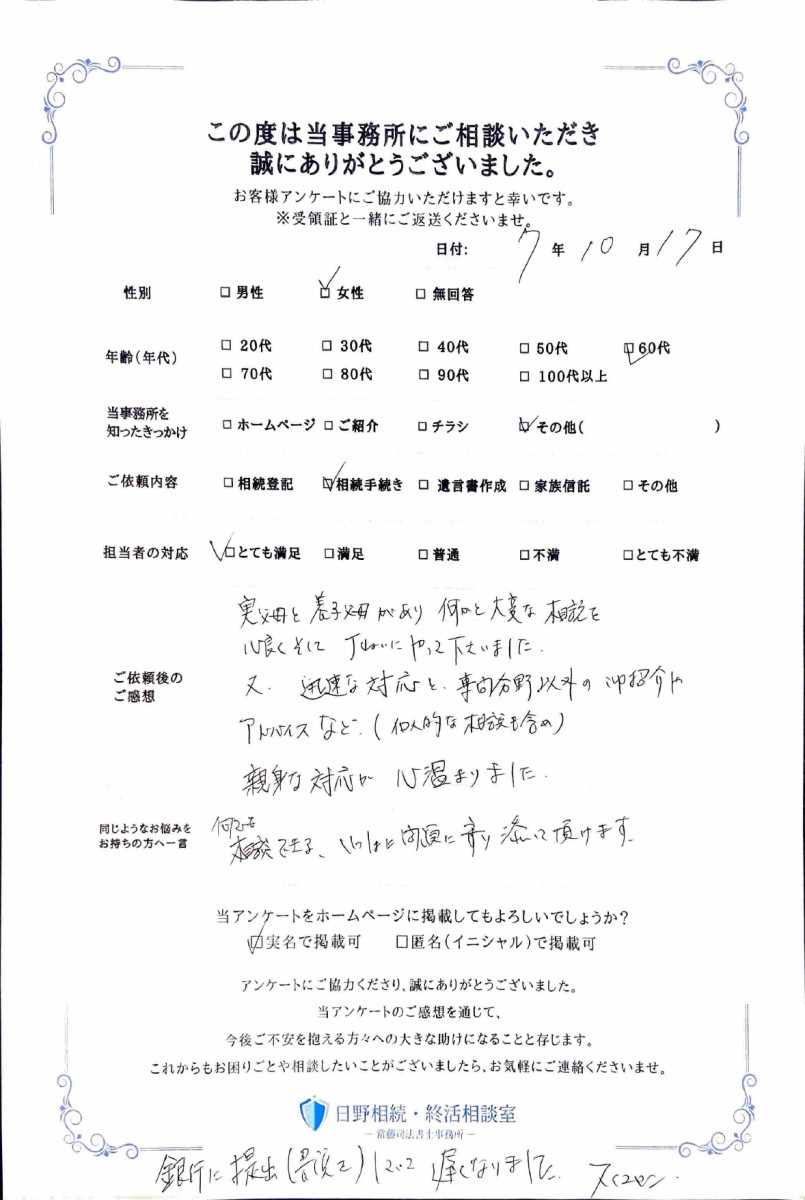 この度は当事務所にご相談いただき
誠にありがとうございました。
お客様アンケートにご協力いただけますと幸いです。
※受領証と一緒にご返送くださいませ。
日付: 7 年 10 月 17 日
性別 □ 男性 ☑ 女性 □ 無回答
年齢(年代) □ 20代 □ 30代 □ 40代 □ 50代 ☑ 60代
□ 70代 □ 80代 □ 90代 □ 100代以上
当事務所を
知ったきっかけ □ ホームページ □ ご紹介 □ チラシ ☑ その他( )
ご依頼内容 □ 相続登記 ☑ 相続手続き □ 遺言書作成 □ 家族信託 □ その他
担当者の対応 ☑ とても満足 □ 満足 □ 普通 □ 不満 □ とても不満
ご依頼後の
ご感想
実父母と養子父母があり 何かと大変な相談を
心良くそして 丁ねいにやって下さいました.
又. 迅速な対応と、専門分野以外の 紹介や
アドバイスなど.(個人的な相談も含め)
親身な対応が 心温まりました.
同じようなお悩みを
お持ちの方へ一言
何でも
相談できる、いっしょに問題に寄り添って頂けます.
当アンケートをホームページに掲載してもよろしいでしょうか?
☑ 実名で掲載可 □ 匿名(イニシャル)で掲載可
アンケートにご協力くださり、誠にありがとうございました。
当アンケートのご感想を通じて、
今後ご不安を抱える方々への大きな助けになることと存じます。
これからもお困りごとや相談したいことがございましたら、お気軽にご連絡くださいませ。
日野相続・終活相談室
― 常藤司法書士事務所 ―
銀行に提出( )していて 遅くなりました. スイマセン.